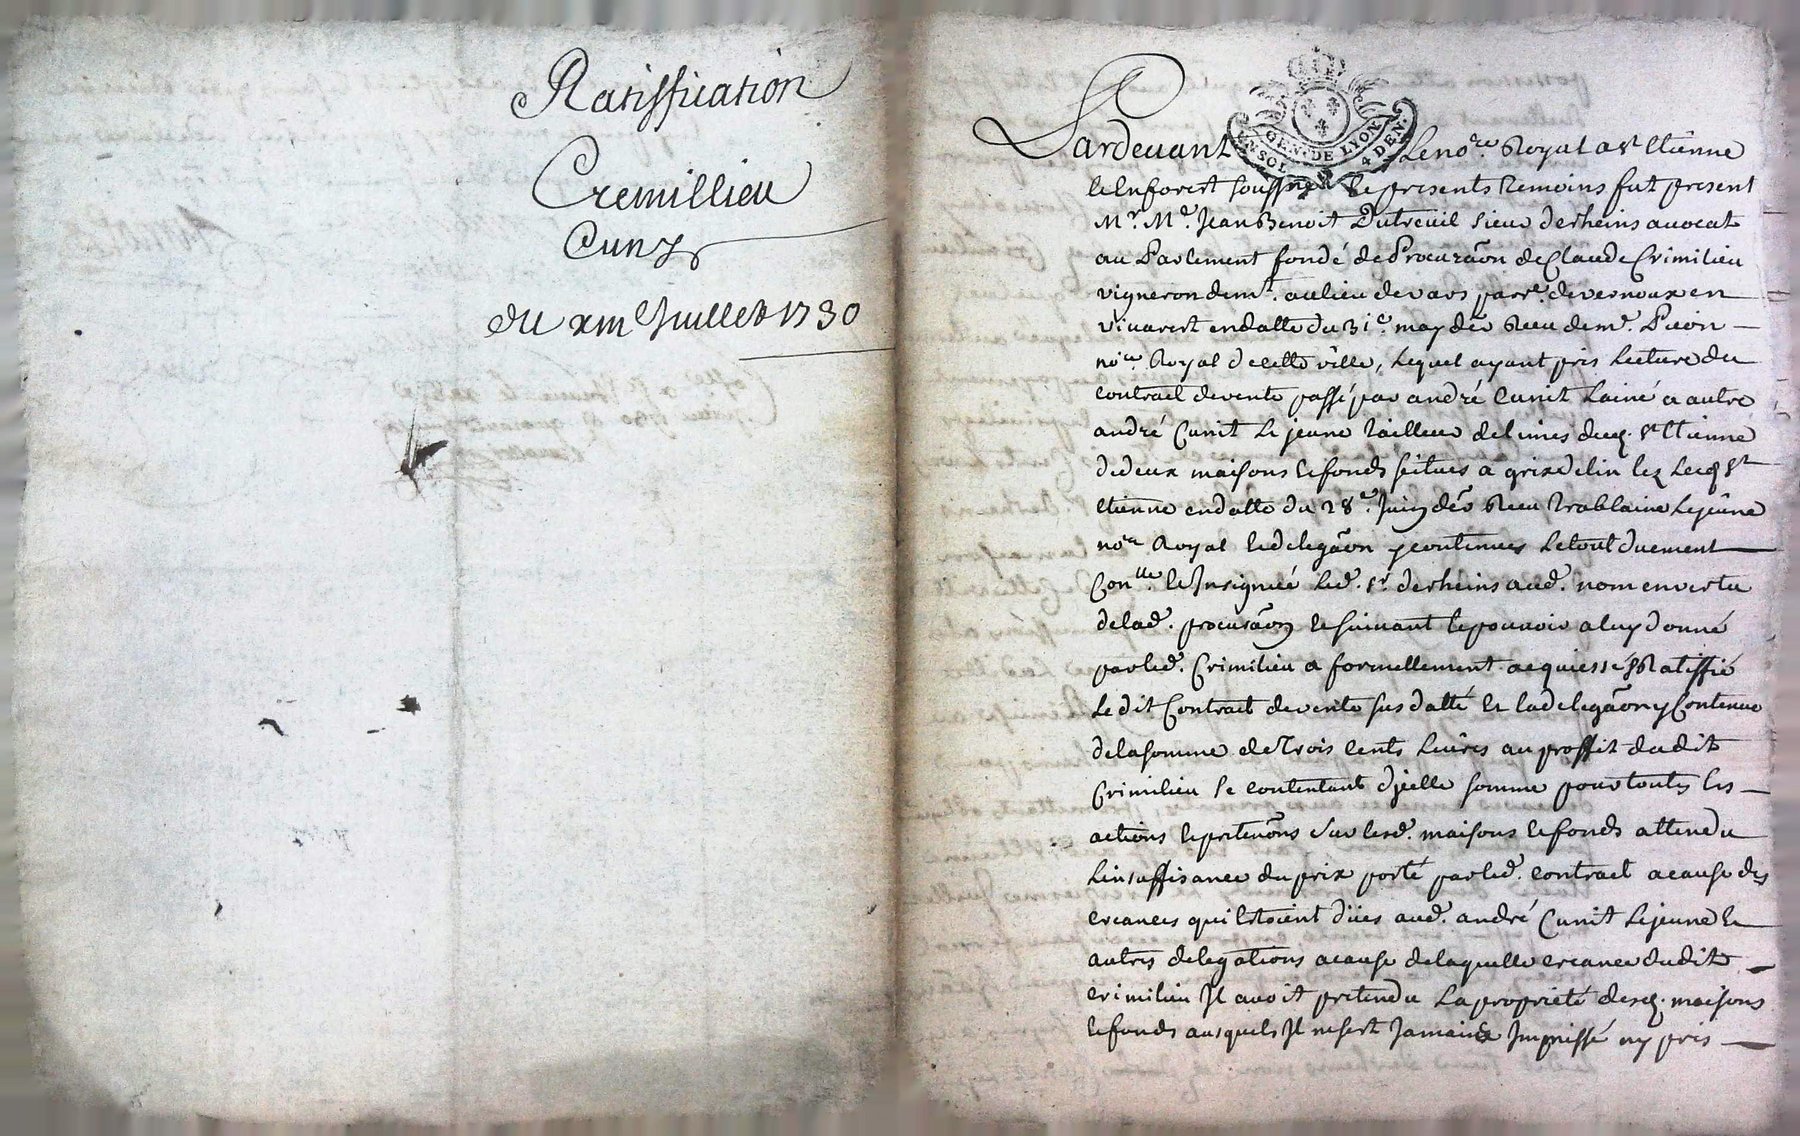 Ratiffication
Cremillieu
Cunz
du xiiie Juillet 1730
GEN. DE LYON
4 DEN.
Pardevant Le nore. Royal a St Etienne
le En forest soussne Le presents temoins fut present
Mr. Me. Jean Benoit Dutreuil sieur derheins avocat
au Parlement fondé de Procuraõn de Claude Crimilieu
vigneron demt. au lieu de vars parre. de vernoux en
vivarest en datte du 31e. may der Receu de me. Pieon
nore Royal de cette ville, Lequel ayant pris Lecture du
contract de vente passé par andré Cunit Lainé a autre
andré Cunit Le jeune tailleur de limes dud. St Etienne
de deux maisons Le fonds scitues a grisdelin lez Led St
Etienne en datte du 28e. Juin der Receu trablaine Le jeune
nore Royal Le delegaõn y contenues Le tout duement
Conlle. Le Insignué Led. sr. derheins aud. nom en vertu
de lad. procuraõn Le suivant le pouvoir a luy donné
par led. Crimilieu a formellement acquiessé & Ratiffié
Le dit Contract de vente sus datté Et la delegaõn y Contenue
de la somme de trois cents Livres au proffit du dit
Crimilieu se contentant d'jcelle somme pour toutes les
actions Le pretenõns sur lesd. maisons Le fonds attendu
L'insuffisance du prix porté par led. contract a cause des
creances qui Estoient dües aud. andré Cunit Le jeune Et
autres delegations a cause de laquelle creance du dit
crimilieu Il avoit pretendu La proprieté desd. maisons
Le fonds ausquels Il ne s'est Jamais Immissé ny pris